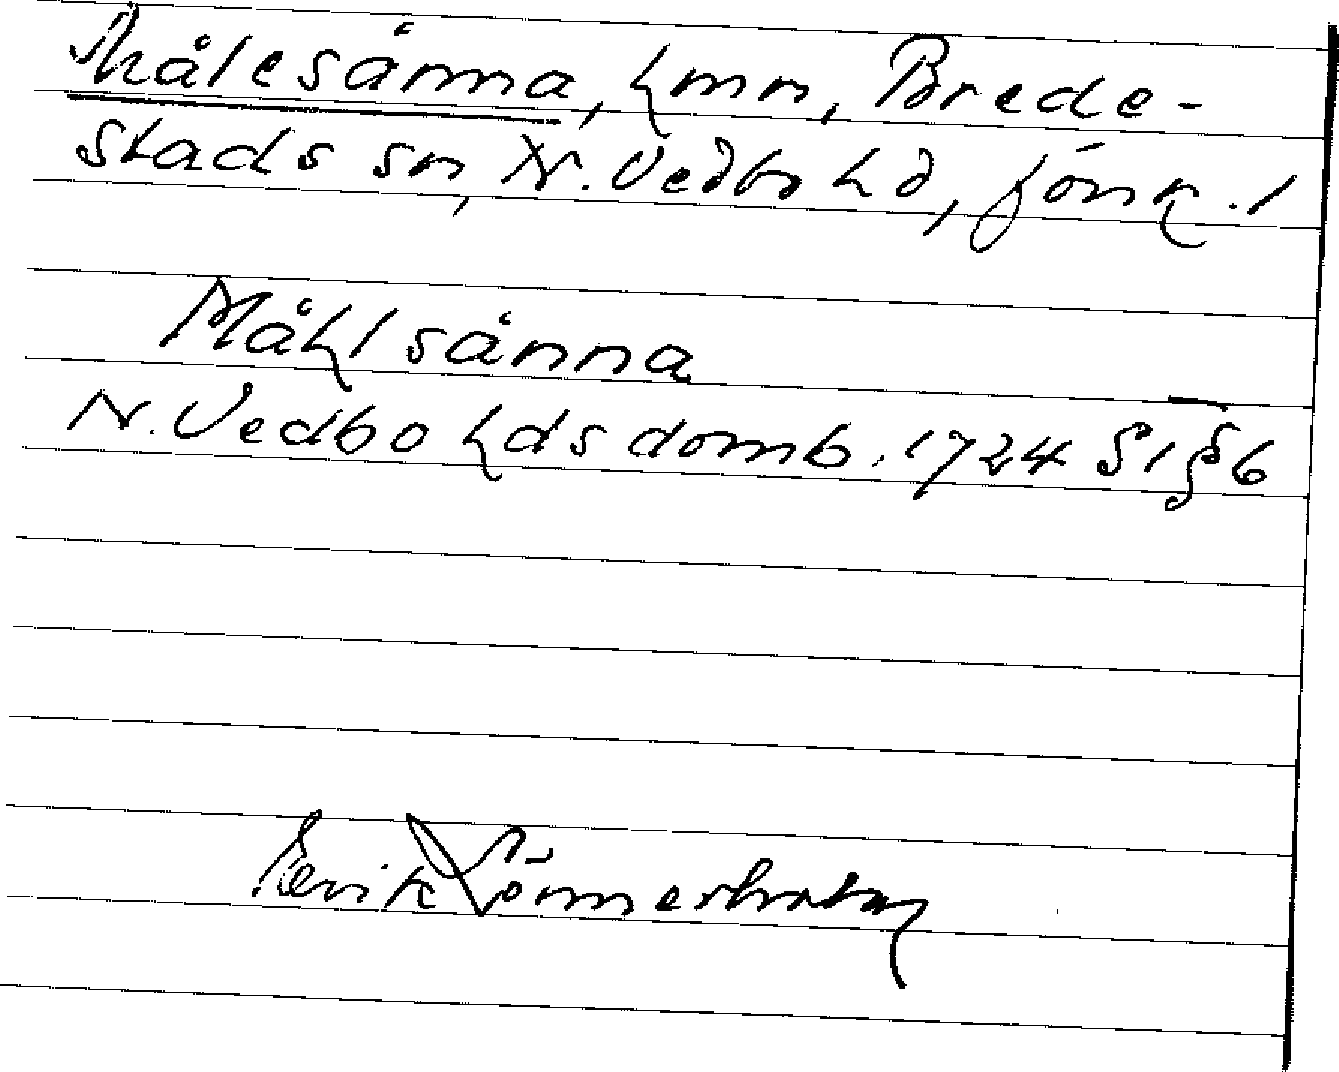 Målesånna, hmn, Brede-
stads sn, N. Vedbo hd, Jönk. l
Måhlsånna
N. Vedbo hds domb. 1724 S1 § 6
Erik Lönnerholm